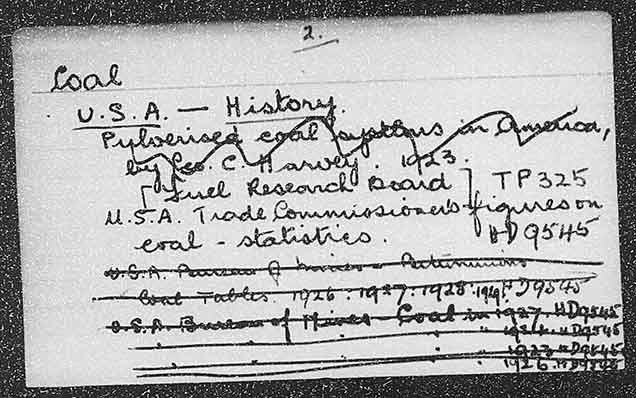 2.
Coal
U.S.A. — History.
Pulverised coal systems in America,
by Geo. C. Harvey. 1923.
[Fuel Research Board] TP325
U.S.A. Trade Commissioner's figures on
coal - statistics. HD9545
U.S.A. Bureau of Mines - Bituminous
Coal Tables. 1926. 1927. 1928. 1929. HD9545
U.S.A. Bureau of Mines - Coal in 1927. HD9545
" " " " HD9545
" " " " 1923. HD9545
" " " " 1926. HD9545